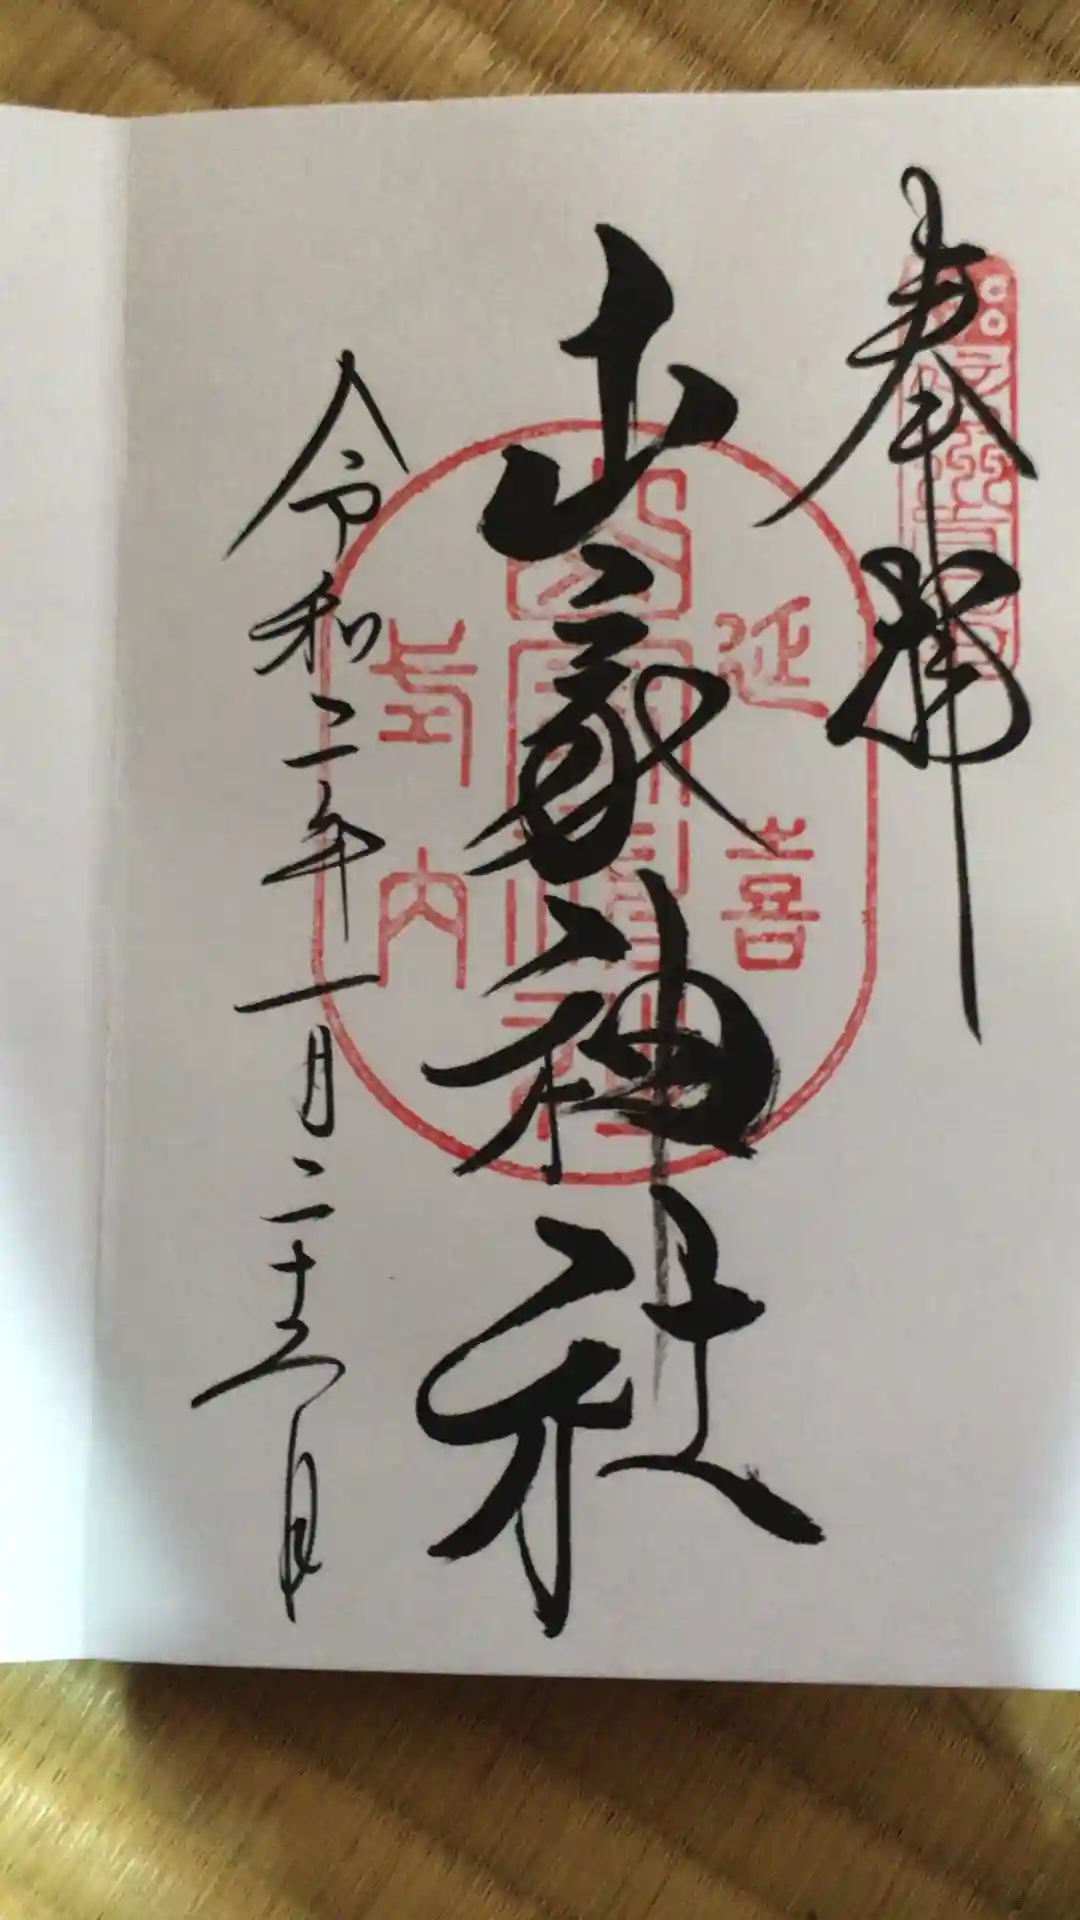 奉拝
山家神社
延喜
式内
山家神社
令和二年一月二十六日